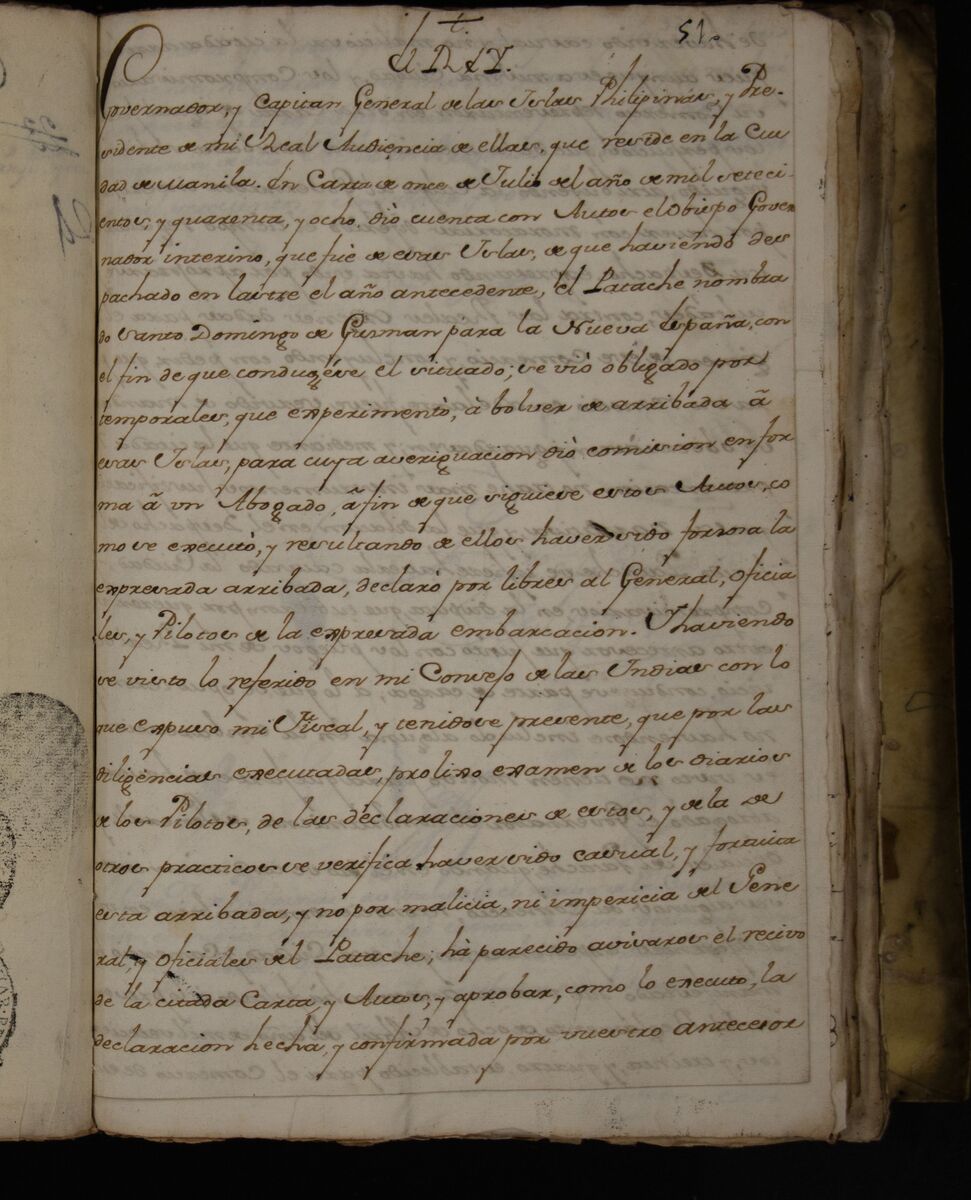 51.
†
el REY.
Governador, y Capitan General de las Yslas Philipinas, y Pre-
sidente de mi Real Audiencia de ellas, que reside en la Ciu
dad de Manila. En Carta de once de Julio del año de mil seteci-
entos, y quarenta, y ocho, diò cuenta con Autos el Obispo Gover
nador interino, que fué de esas Yslas, de que haviendo des
pachado en lastre el año antecedente, el Patache nombra
do Santo Domingo de Gusman para la Nueva España, con
el fin de que condugése el situado; se viò obligado por
temporales, que experimentò, à bolver de arribada ã
esas Yslas, para cuya averiguacion diò comision en for
ma ã un Abogado, ã fin de que siguiese estos Autos, co
mo se executò, y resultando de ellos haver sido forzosa la
expresada arribada, declarò por libres al General, Oficia
les, y Pilotos de la expresada embarcacion. Y haviendo
se visto lo referido en mi Consejo de las Indias con lo
que expuso mi Fiscal, y tenidose presente, que por las
diligencias executadas, prolixo examen de los diarios
de los Pilotos, de las declaraciones de estos, y de la de
otros practicos se verifica haver sido casual, y fortuita
esta arribada, y no por malicia, ni impericia del Gene
ral, y Oficiales del Patache; hà parecido avisaros el recivo
de la citada Carta, y Autos, y aprobar, como lo executo, la
declaracion hecha, y confirmada por vuestro antecesor